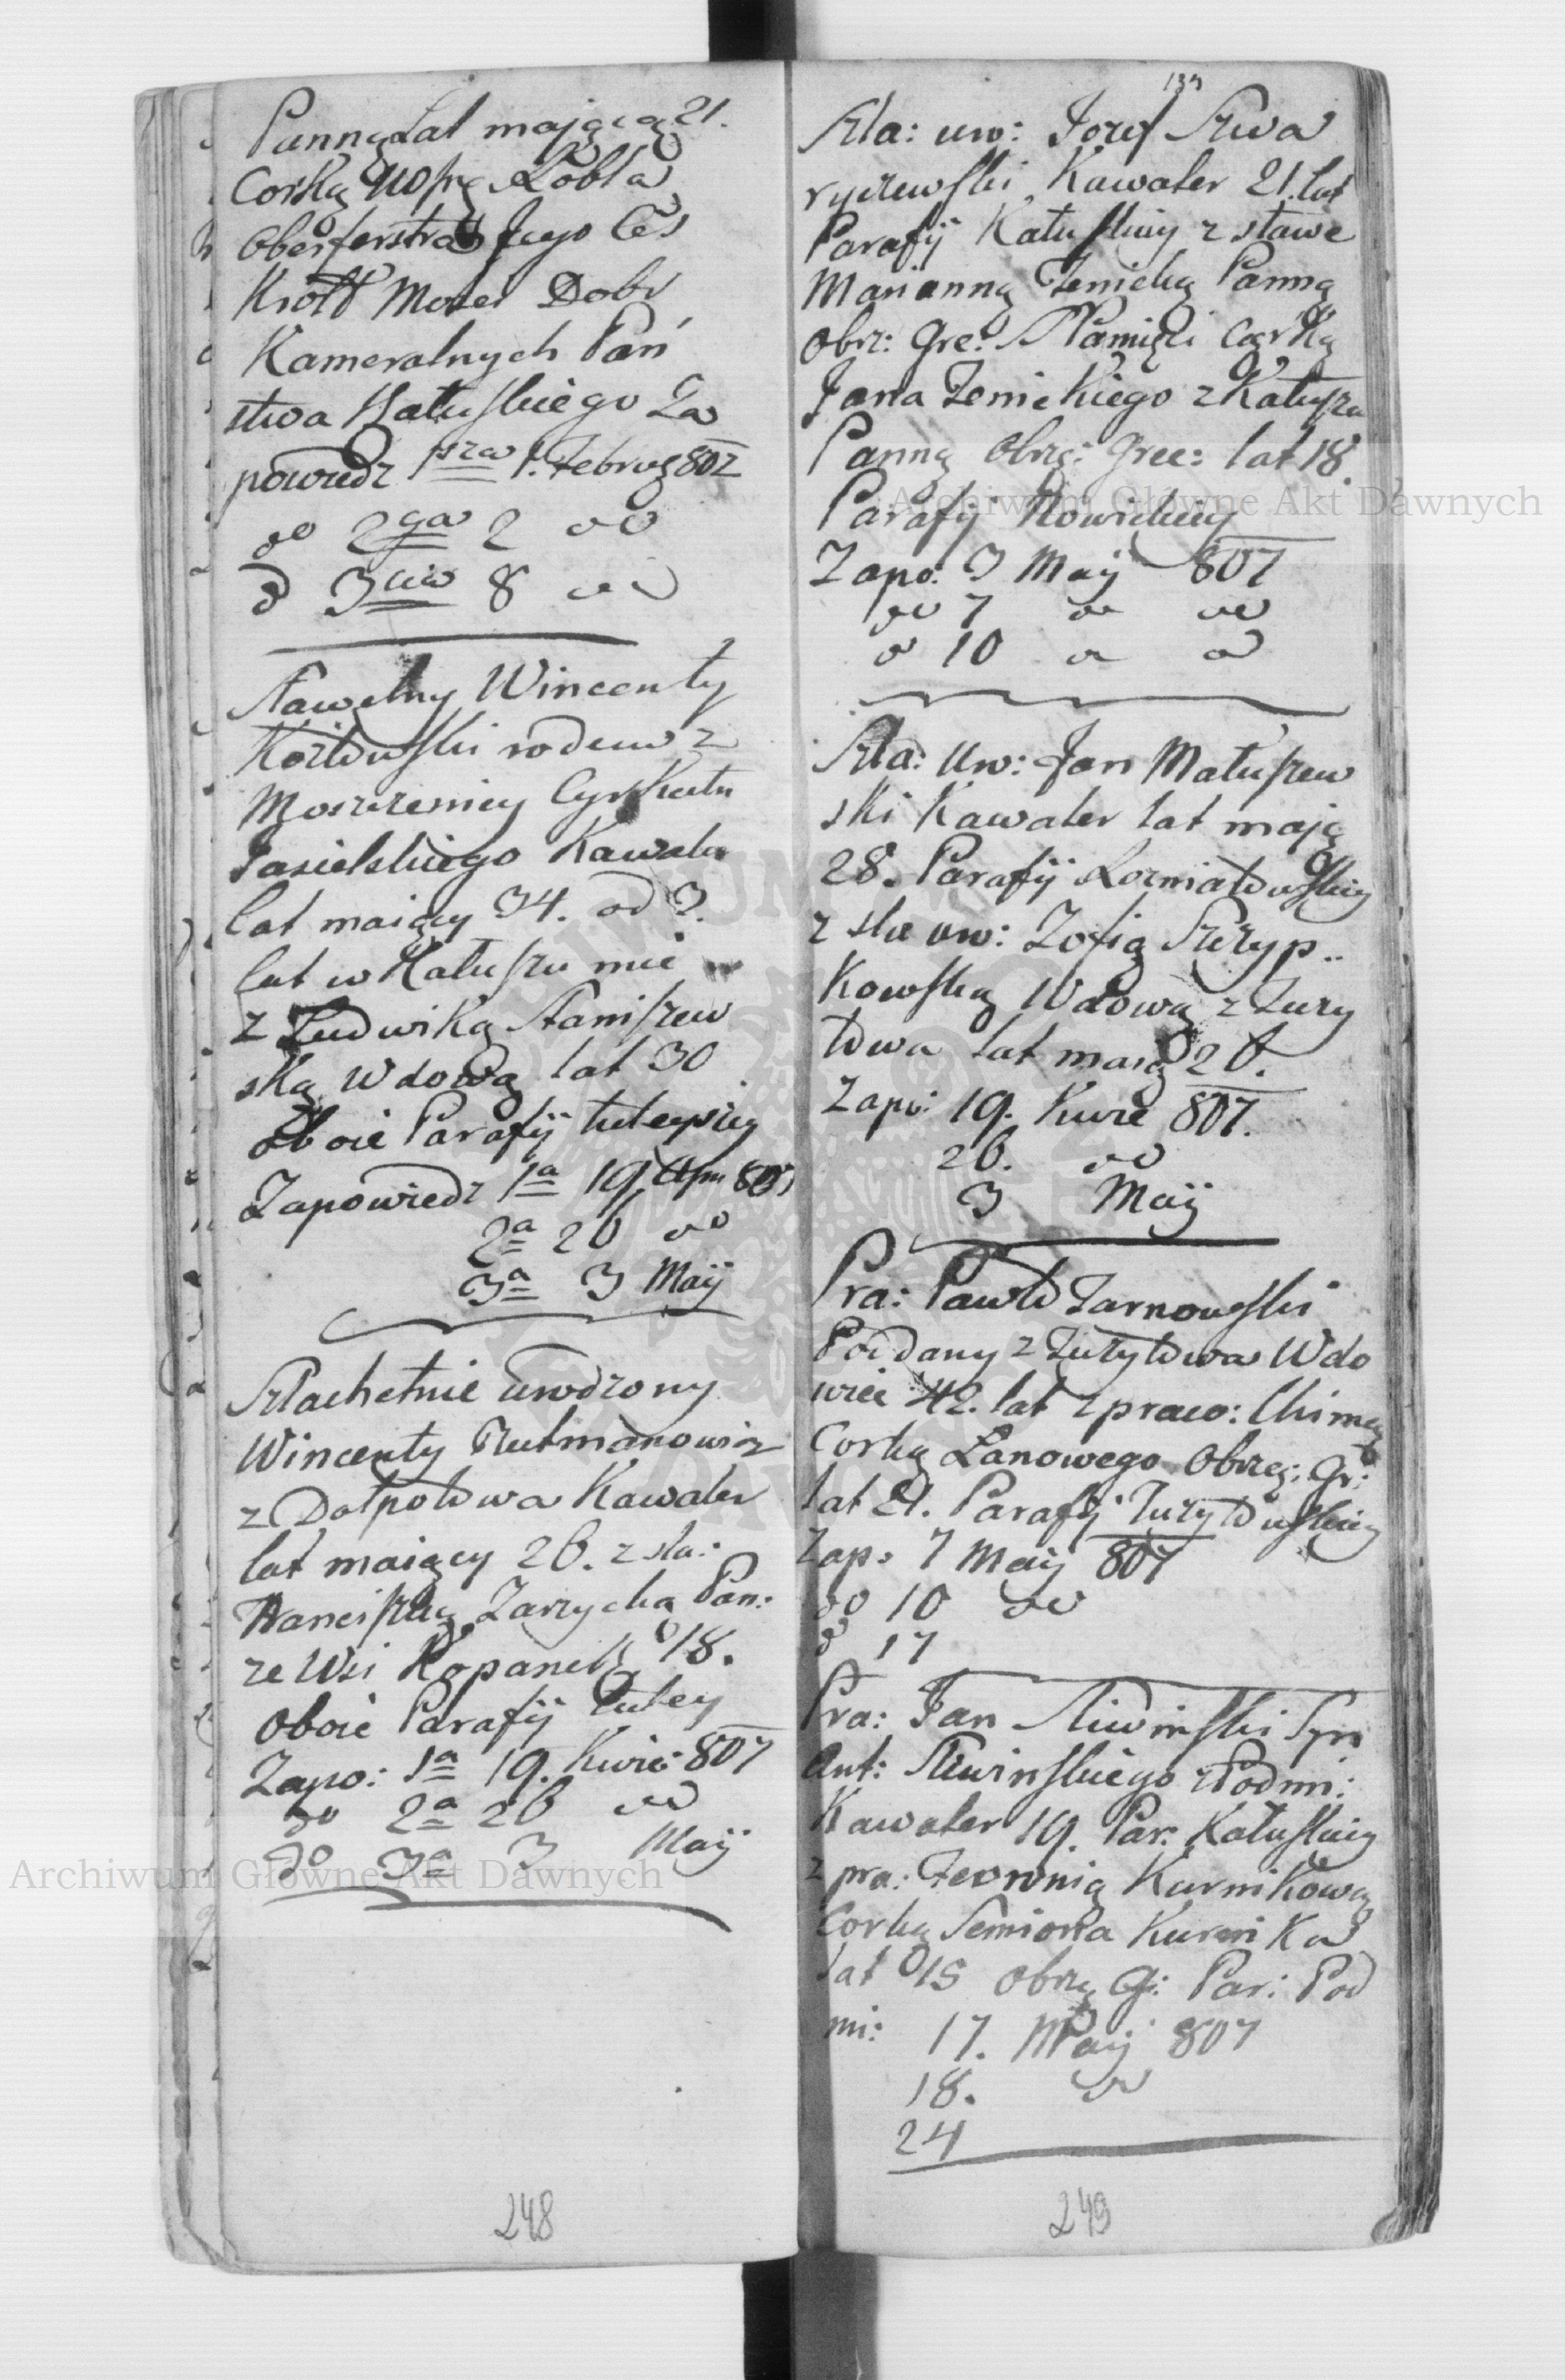 Pannę Lat mającą 21.
Corkę Lobla
Obersferstra Jego Ces
Krolt Mosci Dobr
Kameralnych Pań
stwa Kałuskiego Za
powiedz 1sza 1. Februa 807
do 2ga 2 do
d 3cia 8 do
Sławetny Wincenty
Kozłowski rodem z
Moszczenicy Cyrkułu
Jasielskiego Kawaler
lat maiący 34. od 3.
lat w Kałuszu mie
z Ludwiką Staniszew
ską Wdową lat 30
oboie Parafij tuteyszey
Zapowiedz 1a 19 Apr 807
2a 26 do
3a 3 Maij
Szlachetnie urodzony
Wincenty Rutmanowicz
z Dołpotowa Kawaler
lat maiący 26. z sla:
Franciszką Zarzycką Pan:
ze Wsi Kopanek 18.
oboie Parafij tutey
Zapo: 1a 19. Kwie: 807
do 2a 26 do
do 3a 3 Maij
248
134
Szla: uro: Jozef Skwa
ryczewski Kawaler 21. lat
Parafij Kałuskiey z sławe
Marianną Zenicką Panną
obrz: Gre: Corką
Jana Zenickiego z Kałusza
Panną obrzę: Grec: lat 18.
Parafij Nowickiey
Zapo: 3 Maij 807
do 7 do do
d 10 d d
Szla: uro: Jan Matuszew
ski Kawaler lat mają
28. Parafij Łozniatowskiey
z sla uro: Zofią Skrzyp..
kowską Wdową z Zury
towa lat maią 26.
Zapo: 19. Kwie 807.
26. do
3 Maij
Pra: Paweł Zarnowski
Poddany z Zurytowa Wdo
wiec 42. lat z praco:
Corką Łanowego Obrzę: Gr:
lat 21. Parafij Zurytowskiey
Zap: 7 Maij 807
do 10 do
d 17
Pra: Jan Sliwinski Syn
Ant: Sliwinskiego z Podmi:
Kawaler 19. Par: Kałuskiey
z pra: Fewronią Kurnikową
Corką Semiona Kurnika
lat 15 obrzę G: Par: Pod
mi: 17. Maij 807
18. do
24
249
Archiwum Główne Akt Dawnych
Archiwum Główne Akt Dawnych